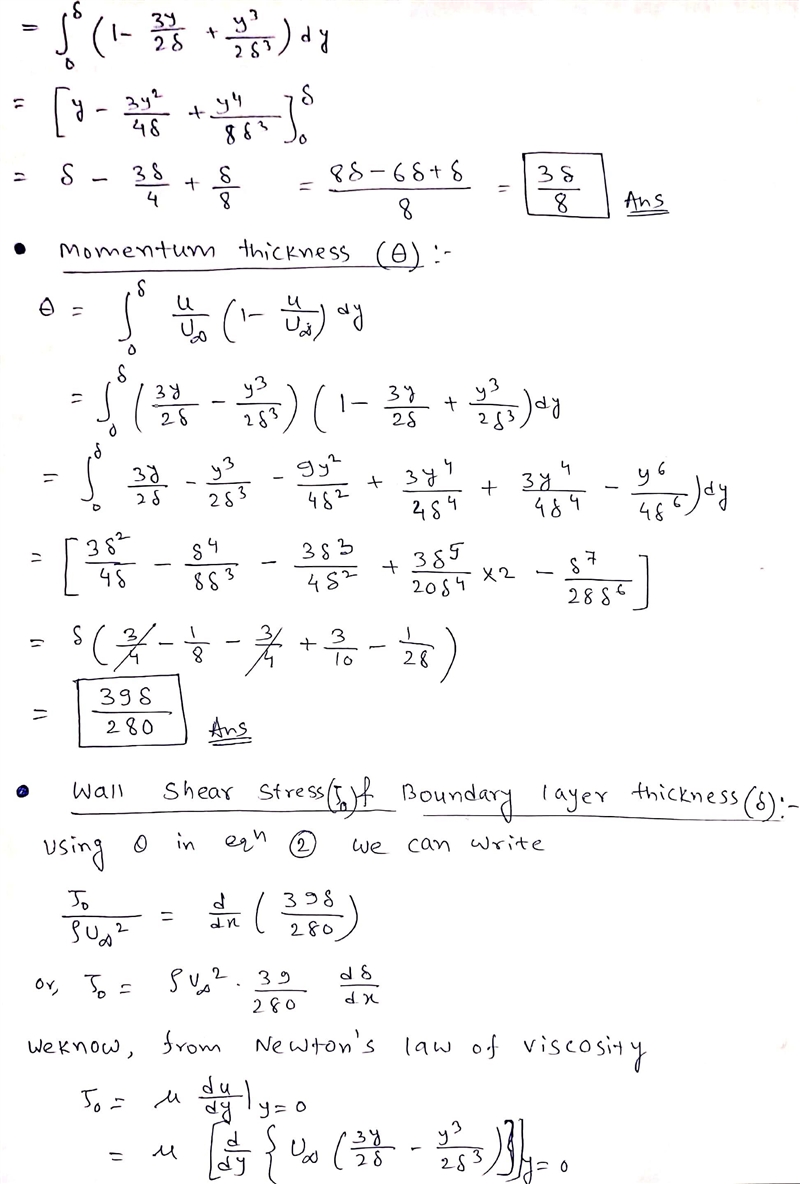 = ∫₀^δ (1 - 3y/2δ + y³/2δ³) dy
= [y - 3y²/4δ + y⁴/8δ³]₀^δ
= δ - 3δ/4 + δ/8 = (8δ - 6δ + δ)/8 = 3δ/8 Ans
• Momentum thickness (θ) :-
θ = ∫₀^δ u/U∞ (1 - u/U∞) dy
= ∫₀^δ (3y/2δ - y³/2δ³) (1 - 3y/2δ + y³/2δ³) dy
= ∫₀^δ 3y/2δ - y³/2δ³ - 9y²/4δ² + 3y⁴/4δ⁴ + 3y⁴/4δ⁴ - y⁶/4δ⁶) dy
= [3δ²/4δ - δ⁴/8δ³ - 3δ³/4δ² + 3δ⁵/20δ⁴ ×2 - δ⁷/28δ⁶]
= δ (3/4 - 1/8 - 3/4 + 3/10 - 1/28)
= 39δ/280 Ans
• Wall Shear Stress (τ₀) & Boundary layer thickness (δ) :-
using θ in eqⁿ ② we can write
τ₀/ρU∞² = d/dx (39δ/280)
or, τ₀ = ρU∞² · 39/280 dδ/dx
we know, from Newton's law of viscosity
τ₀ = μ du/dy |y=0
= μ [d/dy {U∞ (3y/2δ - y³/2δ³)}]y=0